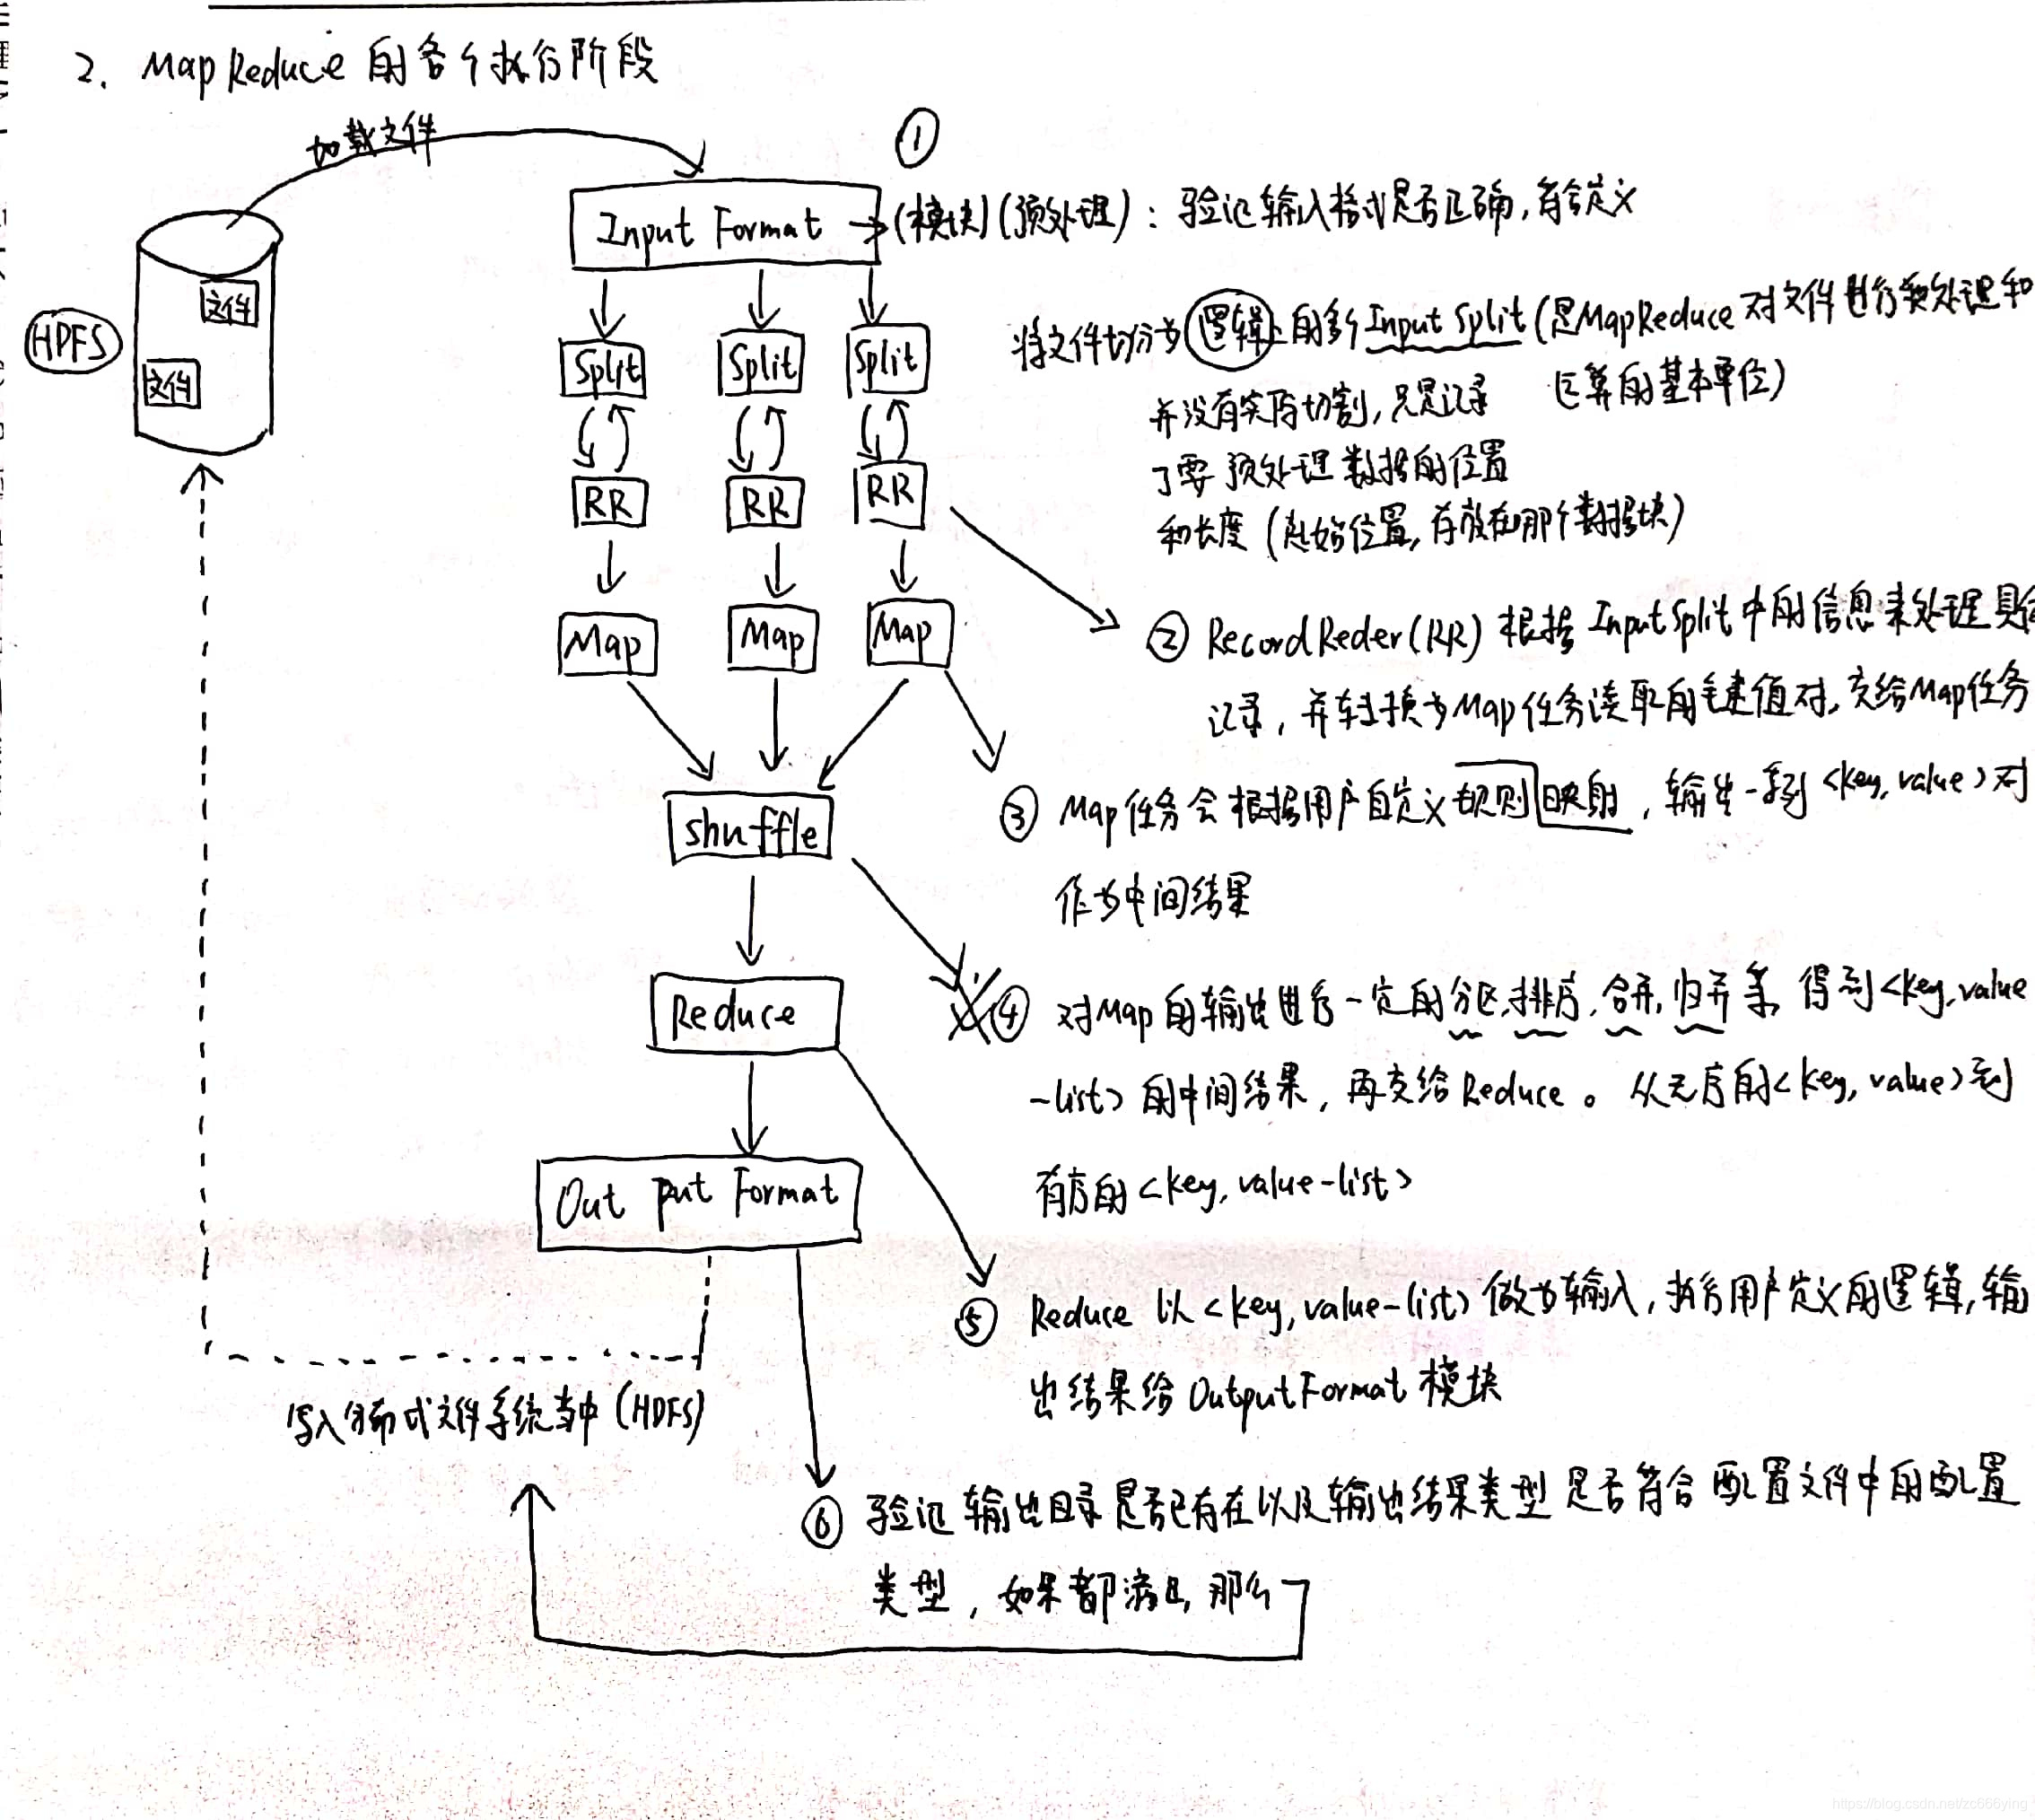 2. MapReduce 的各个执行阶段
加载文件
①
Input Format → (模块)(预处理): 验证输入格式是否正确,符合定义
文件
HPFS
文件
将文件切分为逻辑上的多个Input Split (是MapReduce对文件进行预处理和
运算的基本单位)
并没有实际切割,只是记录
了要预处理数据的位置
和长度 (起始位置,存放在那个数据块)
Split Split Split
RR RR RR
Map Map Map
② RecordReder(RR) 根据 InputSplit中的信息来处理具体
记录, 并转换为Map任务读取的键值对,交给Map任务
③ Map任务会根据用户自定义规则映射, 输出一系列<key,value>对
作为中间结果
shuffle
④ 对Map的输出进行一定的分区,排序,合并,归并等 得到<key,value
-list> 的中间结果, 再交给Reduce。从无序的<key,value>到
有序的<key,value-list>
Reduce
Out put Format
⑤ Reduce 以<key,value-list>做为输入,执行用户定义的逻辑,输
出结果给 OutputFormat 模块
写入分布式文件系统当中(HDFS)
⑥ 验证输出目录是否已存在以及输出结果类型是否符合配置文件中的配置
类型, 如果都满足,那么
https://blog.csdn.net/zc666ying